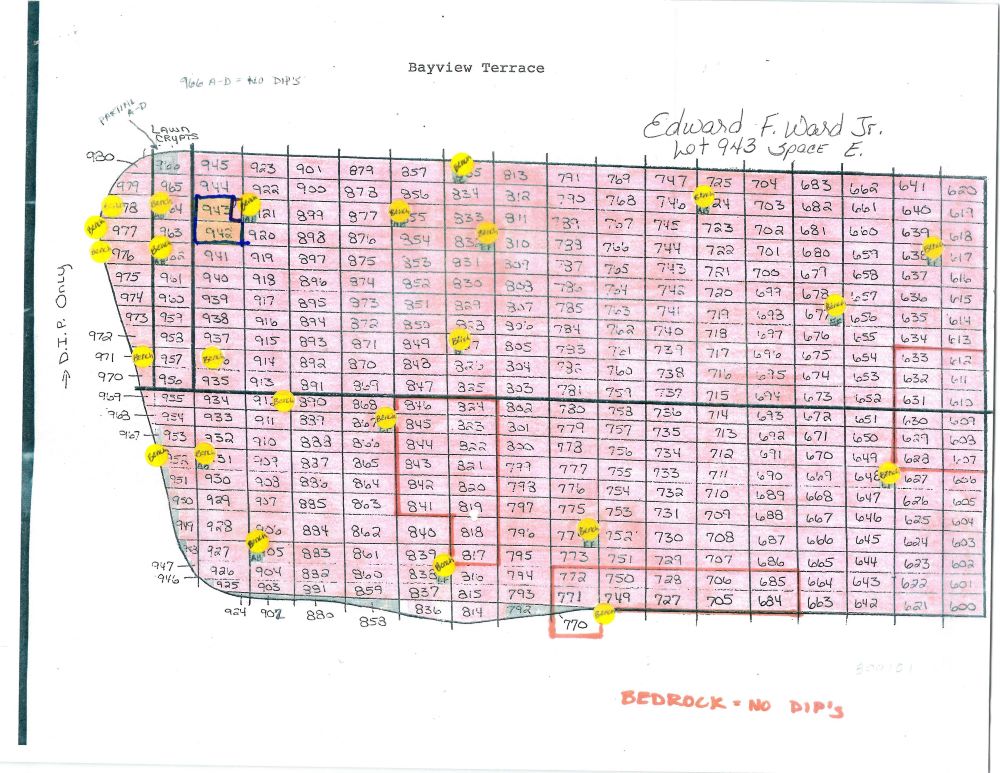 Bayview Terrace
966 A-D = NO DIP'S
PARTIAL
A-D
LAWN
CRYPTS
Edward F. Ward Jr.
Lot 943 Space E.
930 945 923 901 879 857 Bench 813 791 769 747 725 704 683 662 641 620
979 965 944 922 900 878 856 834 812 790 768 746 Bench 703 682 661 640 619
Bench 943 Bench 899 877 Bench 833 811 789 767 745 723 702 681 660 639 618
977 Bench 963 942 920 898 876 854 Bench 810 788 766 744 722 701 680 659 Bench 617
Bench 976 Bench 941 919 897 875 853 831 809 787 765 743 721 700 679 658 637 616
975 961 940 918 896 874 852 830 808 786 764 742 720 699 678 Bench 657 636 615
974 960 939 917 895 873 851 829 807 785 763 741 719 698 656 635 614
973 959 938 916 894 872 850 806 784 762 740 718 697 676 655 634 613
972 958 937 915 893 871 849 Bench 805 783 761 739 717 696 675 654 633 612
971 Bench 957 Bench 914 892 870 848 826 804 782 760 738 716 695 674 653 632 611
970 956 935 913 891 869 847 825 803 781 759 737 715 694 673 652 631 610
969 955 934 Bench 890 868 846 824 802 780 758 736 714 693 672 651 630 609
968 954 933 911 889 867 Bench 845 823 801 779 757 735 713 692 671 650 629 608
967 953 932 910 888 866 844 822 800 778 756 734 712 691 670 649 628 607
Bench 952 Bench 931 909 887 865 843 821 799 777 755 733 711 690 669 648 Bench 627 606
951 930 908 886 864 842 820 798 776 754 732 710 689 668 647 626 605
950 929 907 885 863 841 819 797 775 753 731 709 688 667 646 625 604
949 928 906 884 862 840 818 796 Bench 752 730 708 687 666 645 624 603
948 927 Bench 905 883 861 839 817 795 773 751 729 707 686 665 644 623 602
947 926 904 882 860 838 Bench 816 794 772 750 728 706 685 664 643 622 601
946 925 903 881 859 837 815 793 771 749 727 705 684 663 642 621 600
924 902 880 858 836 814 792 770 Bench
→ D.I.P. Only
BEDROCK = NO DIP'S